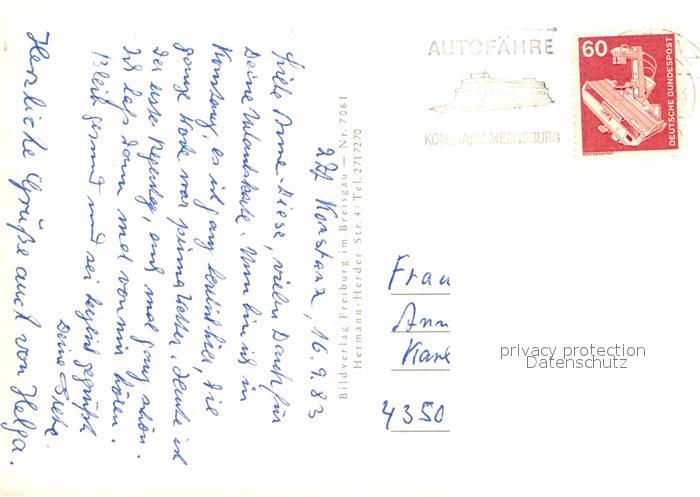 AUTOFÄHRE
KONSTANZ-MEERSBURG
60
DEUTSCHE BUNDESPOST
zZt Konstanz, 16.9.83
Liebe Anne-Liese, vielen Dank für
Deine Urlaubskarte. Nun bin ich in
Konstanz, es ist ganz herrlich hier, die
ganze Woche war prima Wetter. Heute ist
der erste Regentag, auch mal ganz schön.
Ich laß dann mal von mir hören.
Bleib gesund und sei herzlich gegrüßt
Deine Grete
Herzliche Grüße auch von Helga.
Bildverlag Freiburg im Breisgau — Nr. 7061
Hermann-Herder Str. 4 / Tel. 2717270
Frau
Ann
Karl
4350
privacy protection
Datenschutz